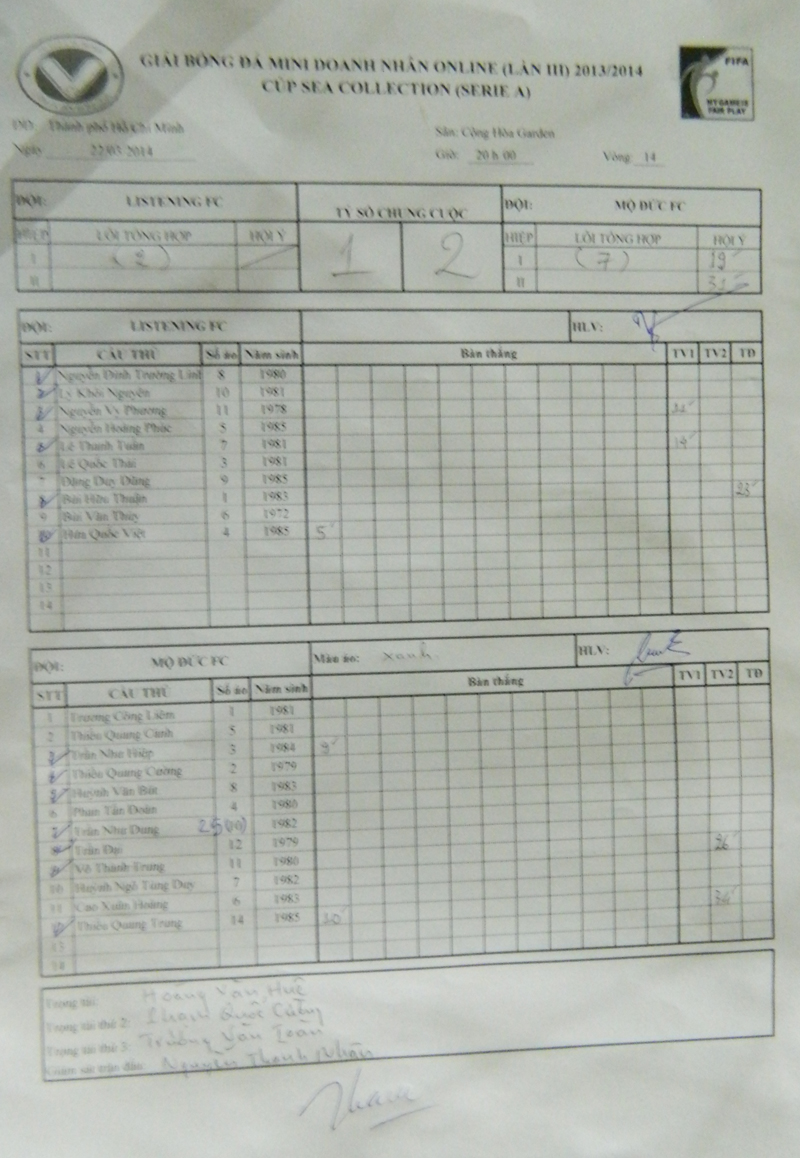 GIẢI BÓNG ĐÁ MINI DOANH NHÂN ONLINE (LẦN III) 2013/2014
CÚP SEA COLLECTION (SERIE A)
FIFA
MY GAME IS
FAIR PLAY
Thành phố Hồ Chí Minh
Sân: Cộng Hòa Garden
Ngày 22/03/2014 Giờ: 20 h 00 Vòng: 14
ĐỘI: LISTENING FC TỶ SỐ CHUNG CUỘC ĐỘI: MỘ ĐỨC FC
HIỆP LỖI TỔNG HỢP HỘI Ý 1 2 HIỆP LỖI TỔNG HỢP HỘI Ý
I (2) I (7) 19'
II II 31'
ĐỘI: LISTENING FC HLV:
STT CẦU THỦ Số áo Năm sinh Bàn thắng TV1 TV2 TĐ
1 Nguyễn Đình Trường Linh 8 1980
2 Lý Khôi Nguyên 10 1981
3 Nguyễn Vy Phương 11 1978
4 Nguyễn Hoàng Phúc 5 1985
5 Lê Thanh Tuấn 7 1981 19'
6 Lê Quốc Thái 3 1981
7 Đặng Duy Dũng 9 1985
8 Bùi Hữu Thuận 1 1983 23'
9 Bùi Văn Thủy 6 1972
10 Hứa Quốc Việt 4 1985 5'
11
12
13
14
ĐỘI: MỘ ĐỨC FC Màu áo: xanh HLV:
STT CẦU THỦ Số áo Năm sinh Bàn thắng TV1 TV2 TĐ
1 Trương Công Liêm 1 1981
2 Thiều Quang Cảnh 5 1981
3 Trần Như Hiệp 3 1984 9'
4 Thiều Quang Cường 2 1979
5 Huỳnh Văn Bút 8 1983
6 Phan Tấn Đoàn 4 1980
7 Trần Như Dung 25 (10) 1982
8 Trần Đại 12 1979 26'
9 Võ Thành Trung 11 1980
10 Huỳnh Ngô Tùng Duy 7 1982
11 Cao Xuân Hoàng 6 1983
12 Thiều Quang Trung 14 1985
13
14
Trọng tài: Hoàng Văn Huê
Trọng tài thứ 2: Phạm Quốc Cường
Trọng tài thứ 3: Trương Văn Toàn
Giám sát trận đấu: Nguyễn Thanh Nhân